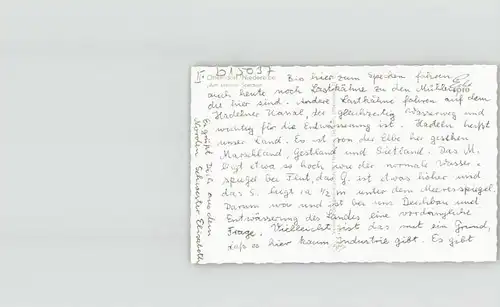 b15037
Otterndorf Niederelbe
Am kleinen Specken
Bis hier zum Specken fahren
auch heute noch Lastkähne zu den Mühlen,
die hier sind. Andere Lastkähne fahren auf dem
Hadelner Kanal, der gleichzeitig Wasserweg und
wichtig für die Entwässerung ist. Hadeln heißt
unser Land. Es ist von der Elbe her gesehen
Marschland, Geestland und Sietland. Das M.
liegt etwa so hoch wie der normale Wasser-
spiegel bei Flut, das G. ist etwas höher und
das S. liegt ca ½ m unter dem Meeresspiegel.
Darum war und ist bei uns Deichbau und
Entwässerung des Landes eine vordringliche
Frage. Vielleicht ist das mit ein Grund,
daß es hier kaum Industrie gibt. Es gibt
Es grüßt Dich aus dem
Norden Schwester Elisabeth